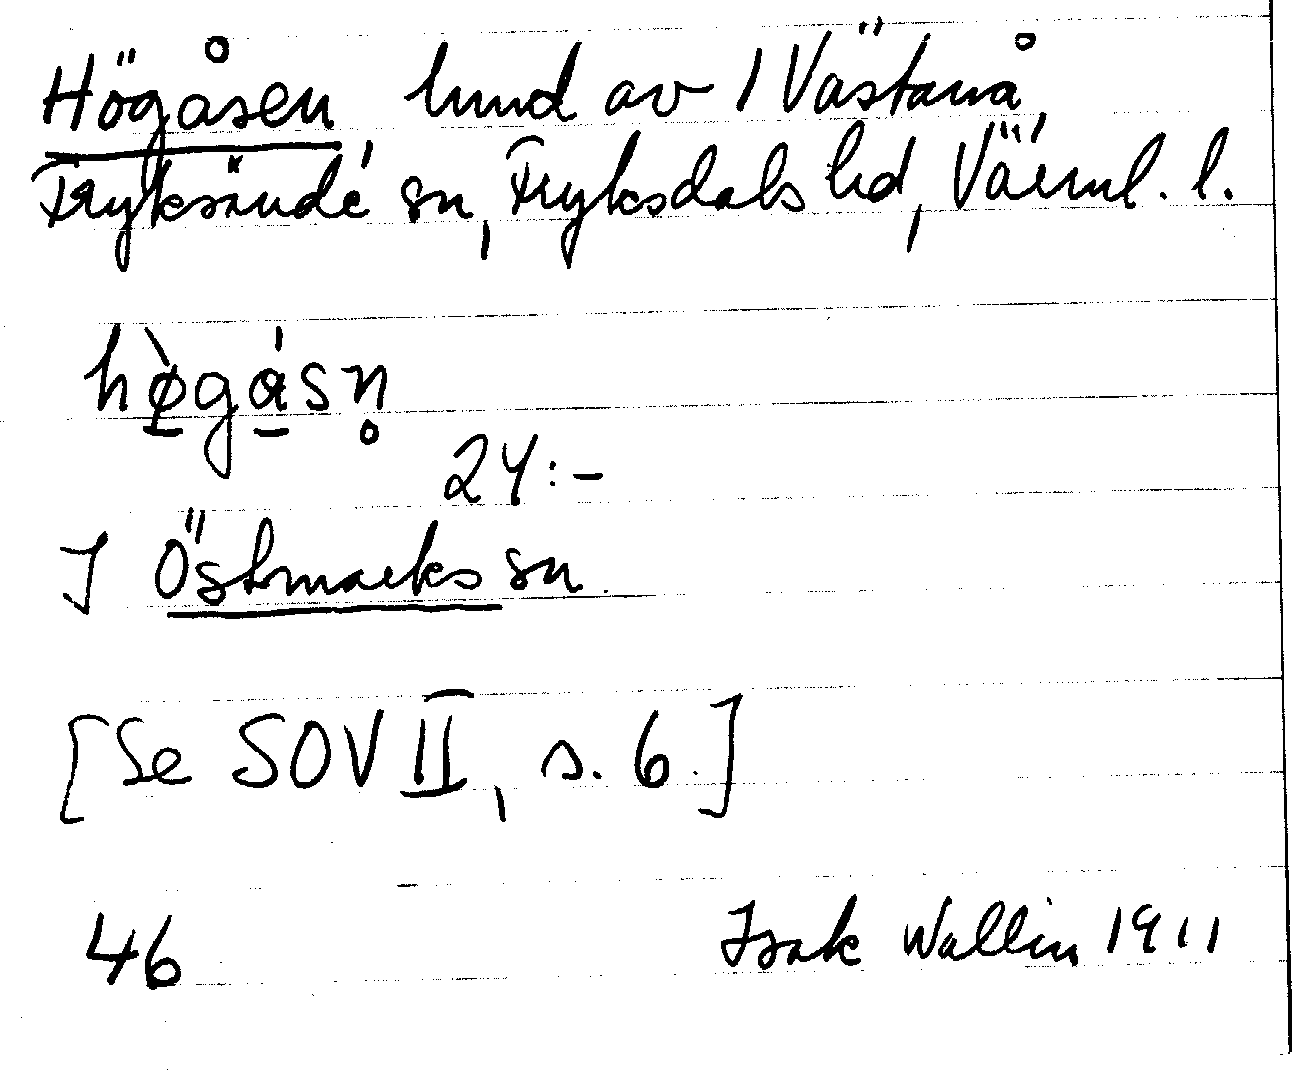 Högåsen lund av 1 Västanå,
Fryksände sn, Fryksdals hd, Värml. l.
hø̀gásn̥
24:-
I Östmarks sn.
[Se SOV II, s. 6.]
46
Isak Wallin 1911